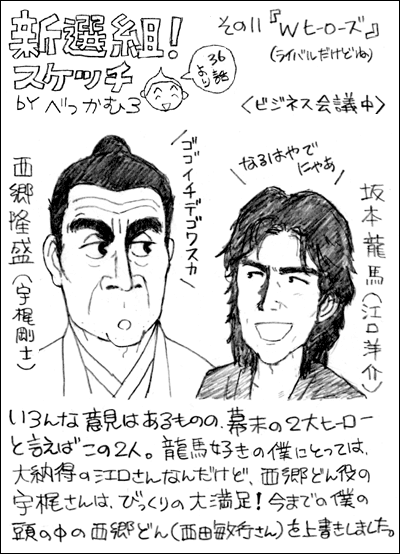 新選組!
スケッチ
BY べっかむ3
36
話
より
その11『Wヒーローズ』
(ライバルだけどね)
<ビジネス会議中>
ゴゴイチデゴワスカ
なるはやで
にゃあ
西郷隆盛(宇梶剛士)
坂本龍馬(江口洋介)
いろんな意見はあるものの、幕末の2大ヒーロー
と言えばこの2人。龍馬好きの僕にとっては、
大納得の江口さんなんだけど、西郷どん役の
宇梶さんは、びっくりの大満足!今までの僕の
頭の中の西郷どん(西田敏行さん)を上書きしました。